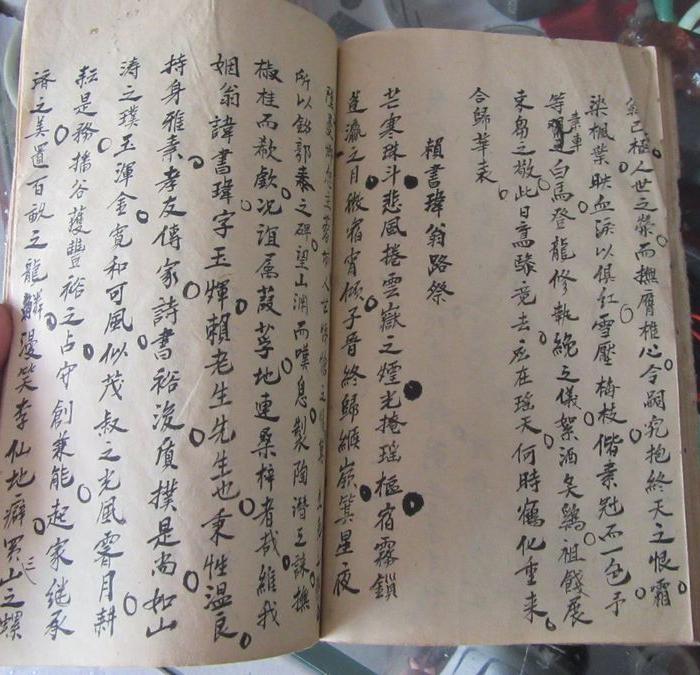 已極人世之榮而撫膺椎心令嗣究抱終天之恨霜
染楓葉映血淚以俱紅雪壓梅枝偕素冠而一色予
等素車白馬登龍修執紼之儀絮酒炙鷄祖餞展
束芻之敬此日驂竟去在瑤天何時鶴化重来
合歸華表
賴書瑋翁路祭
芒寒珠斗悲風捲雲嶽之煙光掩瑤樞宿霧鎖
蓬瀛之月微宿宵傾子晉終歸緱嶺箕星夜
所以郭泰之碑望山渊而嘆息製陶潛之誄撫
椒桂而欷歔况誼属葭莩地連桑梓者哉維我
姻翁諱書瑋字玉輝賴老生先生也秉性温良
持身雅素孝友傳家詩書裕後質撲是尚如山
濤之璞玉渾金寬和可風似茂叔之光風霽月耕
耘是務播谷豐裕之占守創兼能起家继承
濟之美置百畝之龍鱗漫笑李仙地癖買三山之螺